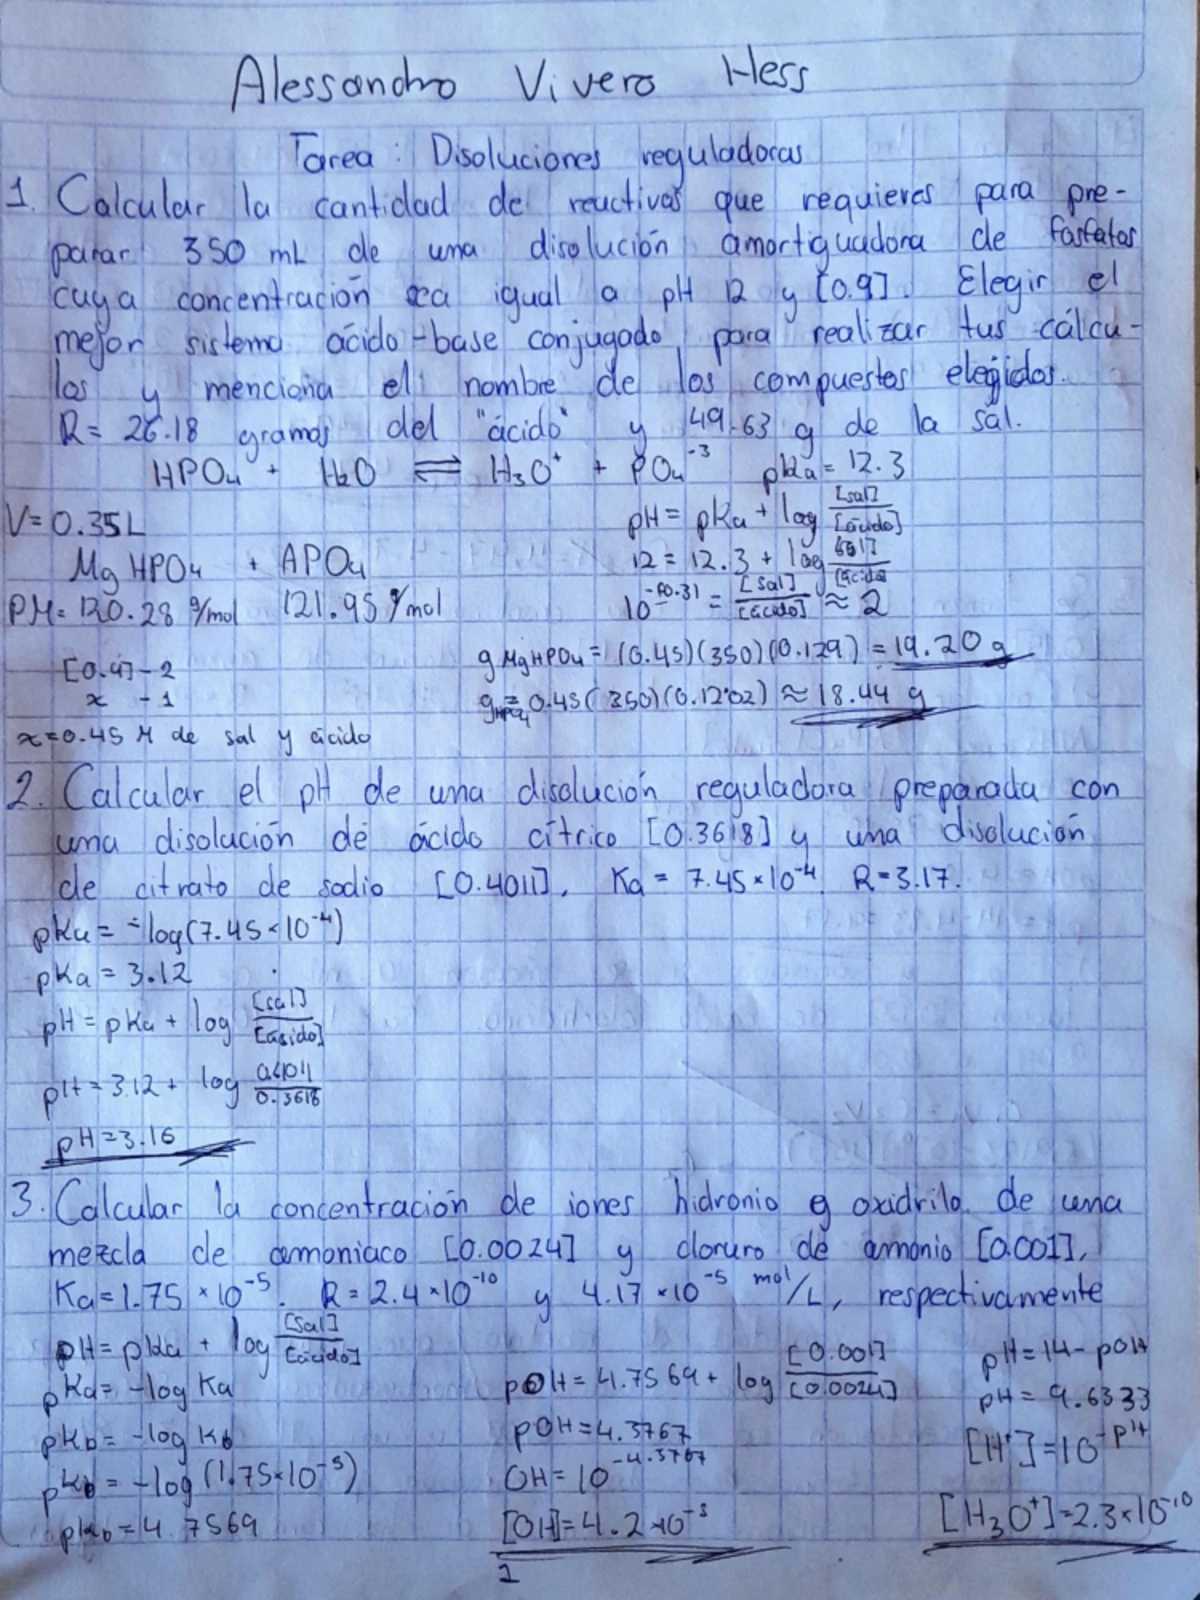 Alessandro Vivero Hess
Tarea: Disoluciones reguladoras
1. Calcular la cantidad de reactivos que requieres para pre-
parar 350 mL de una disolución amortiguadora de fosfatos
cuya concentración sea igual a pH 12 y [0.9]. Elegir el
mejor sistema ácido-base conjugado para realizar tus cálcu-
los y menciona el nombre de los compuestos elegidos.
R= 26.18 gramos del "ácido" y 49.63 g de la sal.
HPO₄ + H₂O ⇌ H₃O⁺ + PO₄⁻³ pKa = 12.3
V= 0.35L
pH= pKa + log [sal]/[ácido]
MgHPO₄ + APO₄
12 = 12.3 + log [sal]/[ácido]
PM= 120.28 g/mol 121.95 g/mol
10^-0.31 = [sal]/[ácido] ≈ 2
g MgHPO₄ = (0.45)(350)(0.129) = 19.20 g
[0.9] - 2
x - 1
g HPO₄ = 0.45(350)(0.1202) ≈ 18.44 g
x=0.45 M de sal y ácido
2. Calcular el pH de una disolución reguladora preparada con
una disolución de ácido cítrico [0.3618] y una disolución
de citrato de sodio [0.4011], Ka = 7.45×10⁻⁴ R=3.17.
pKa = -log(7.45×10⁻⁴)
pKa = 3.12
pH = pKa + log [sal]/[ásido]
pH = 3.12 + log 0.4011/0.3618
pH = 3.16
3. Calcular la concentración de iones hidronio y oxidrilo de una
mezcla de amoniaco [0.0024] y cloruro de amonio [0.001],
Ka=1.75 × 10⁻⁵. R= 2.4×10⁻¹⁰ y 4.17 ×10⁻⁵ mol/L, respectivamente
pH= pKa + log [sal]/[ácido]
pKa= -log Ka
pKb= -log Kb
pKb = -log (1.75×10⁻⁵)
pKb=4.7569
pOH= 4.7569 + log [0.001]/[0.0024]
pOH=4.3767
OH= 10^-4.3767
[OH]=4.2×10⁻⁵
pH=14-pOH
pH= 9.6333
[H⁺]=10^-pH
[H₃O⁺]=2.3×10⁻¹⁰
1